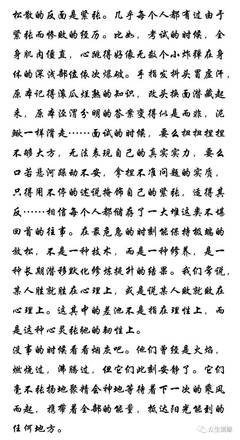 松散的反面是紧张。几乎每个人都有过由于
紧张而惨败的经历。比如，考试的时候，全
身肌肉僵直，心跳得好像无数个小炸弹在身
体的深浅部位依次爆破。手指发抖头冒虚汗，
原本记得滚瓜烂熟的知识，改头换面潜藏起
来，原本泾渭分明的答案变得似是而非，泥
鳅一样滑走……面试的时候，要么扭扭捏捏
不够大方，无法表现自己的真实实力，要么
口若悬河躁动不安，拿捏不准问题的实质，
只得用不停的述说掩饰自己的紧张，适得其
反……相信每个人都储存了一大堆这类不堪
回首的往事。在最危急的时刻能保持极端的
放松，不是一种技术，而是一种修养，是一
种长期潜移默化修炼提升的结果。我们常说，
某人胜就胜在心理上，或是说某人败就败在
心理上。这其中的差池不是指在理性上，而
是这种心灵张弛的韧性上。
没事的时候看看烟灰吧。他们曾经是火焰，
燃烧过，沸腾过，但它们此刻安静了。它们
毫不张扬地聚精会神地等待着下一次的乘风
而起，携带着全部的能量，抵达阳光能到的
任何地方。
众生颂赞